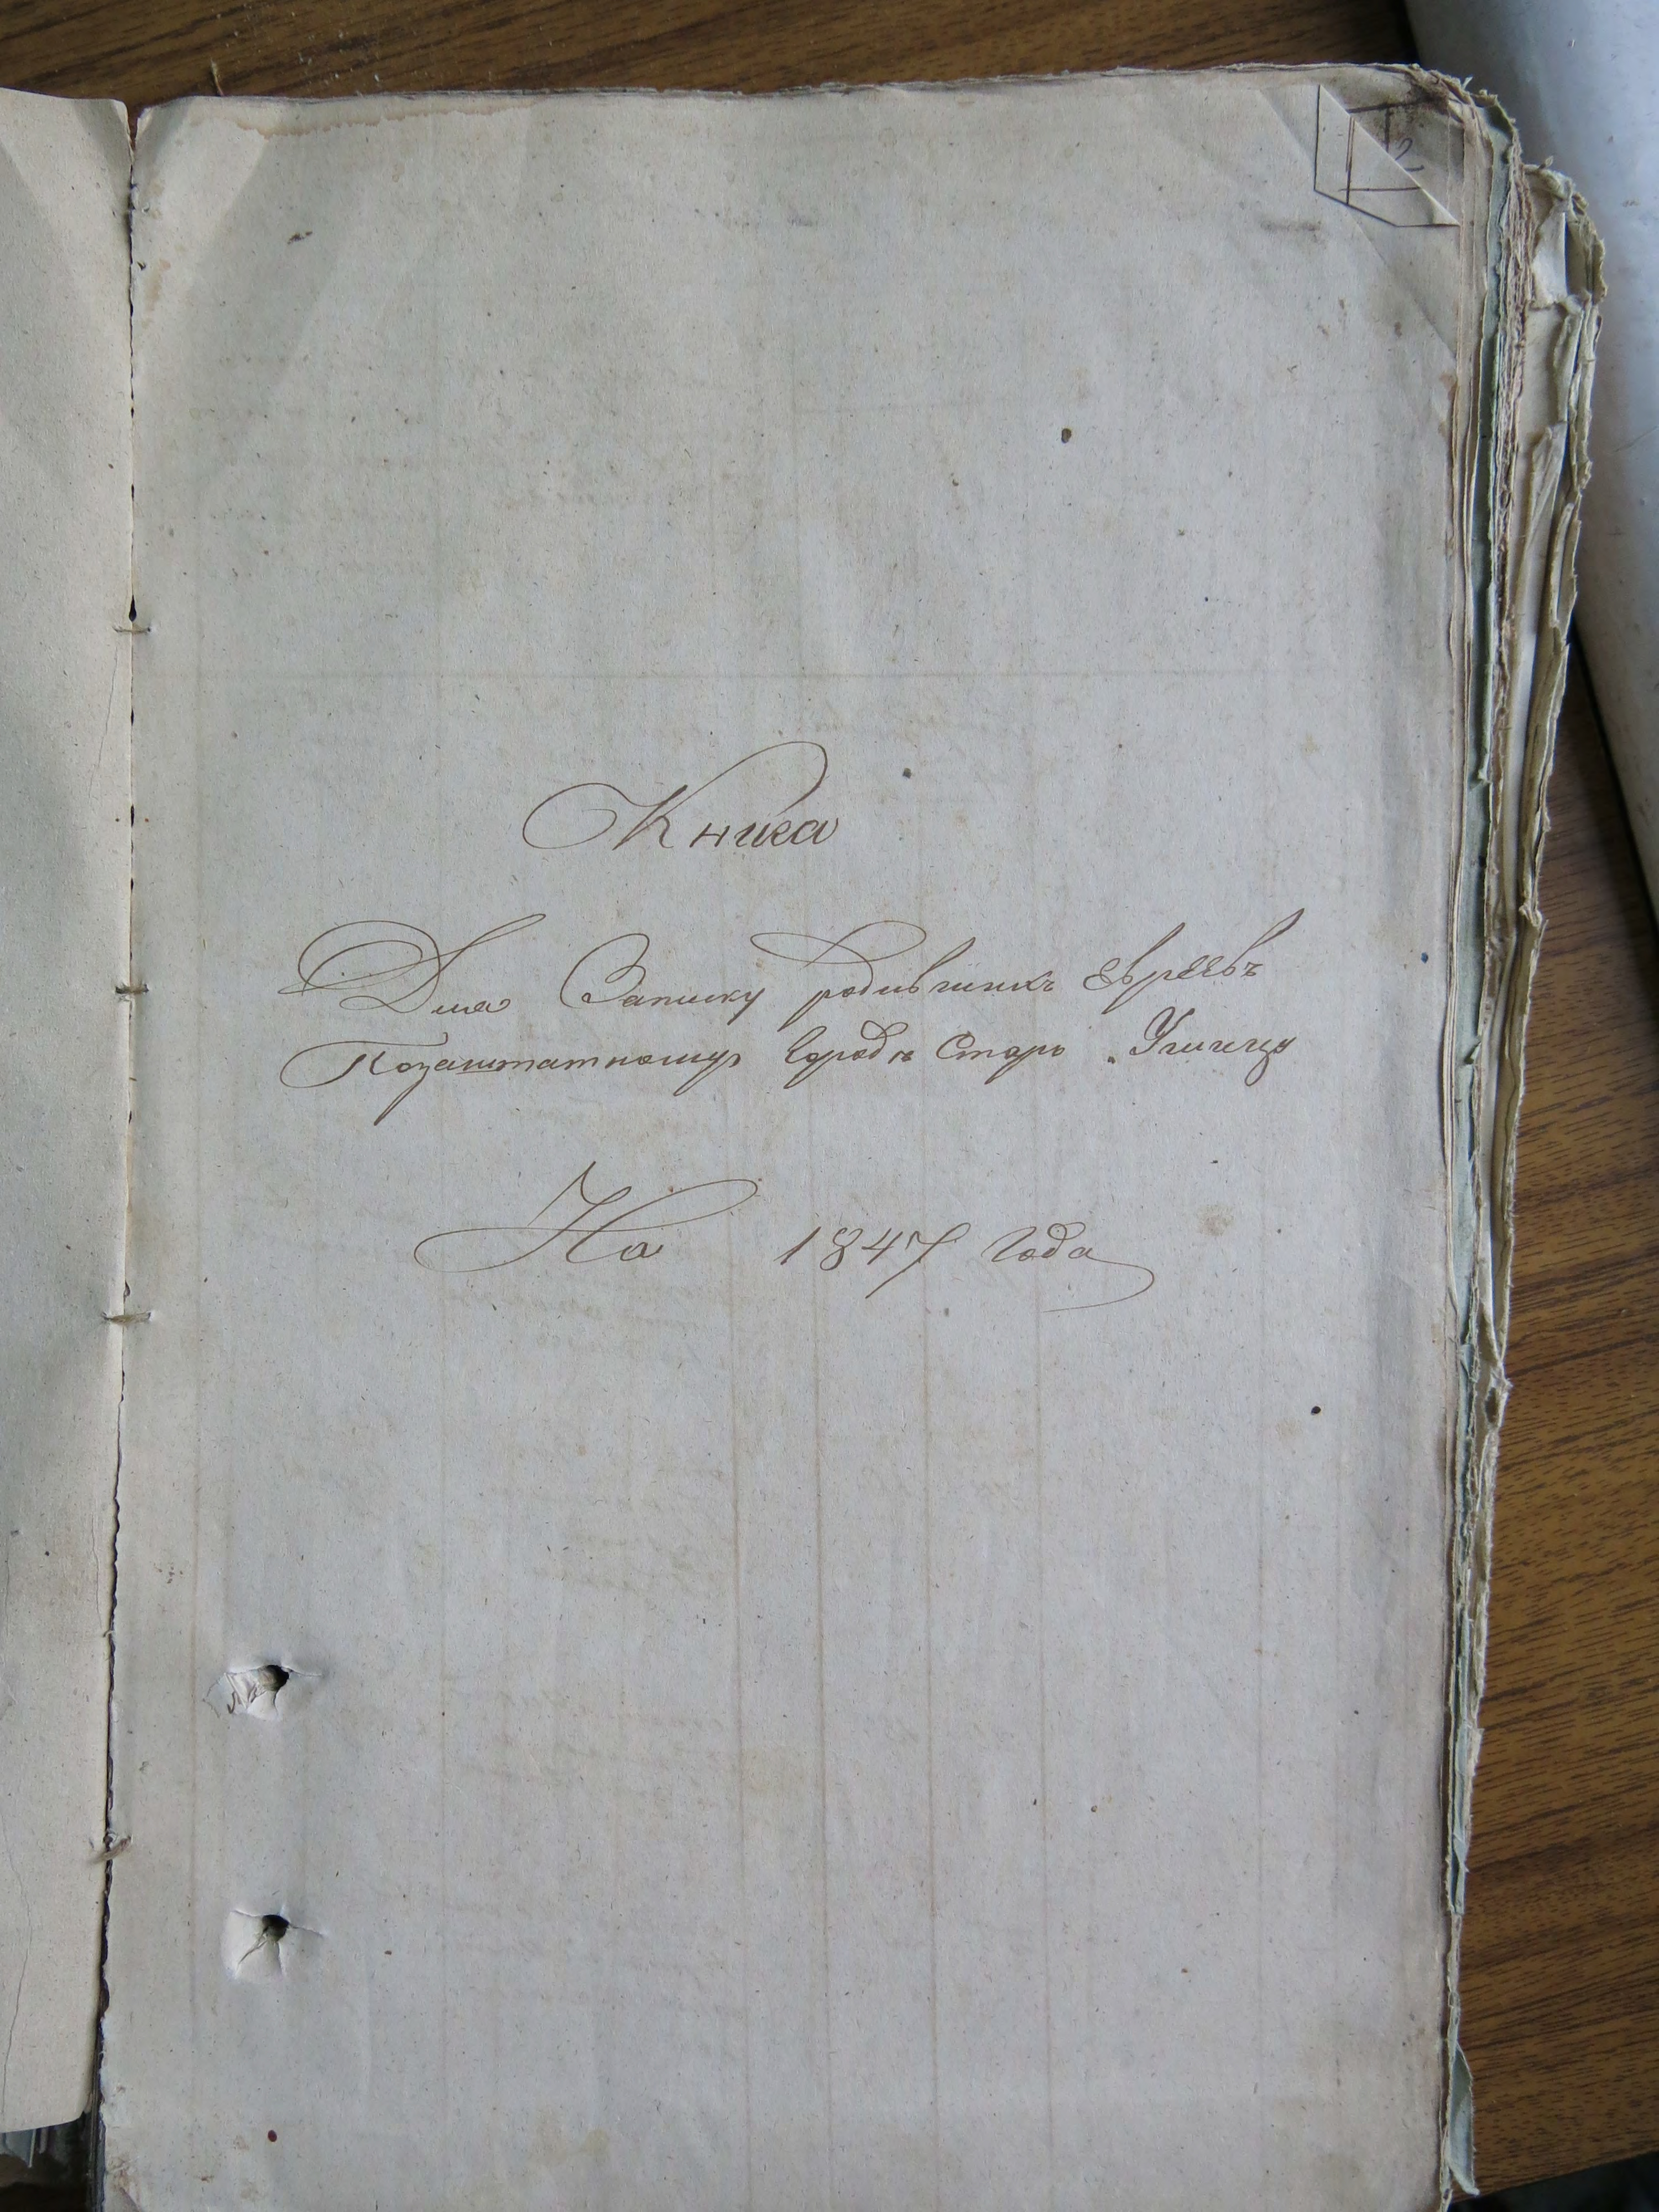 Книга
Для Записку родившихъ Евреевъ
Позаштатному Городѣ Старо Ушицу
На 1847 Года